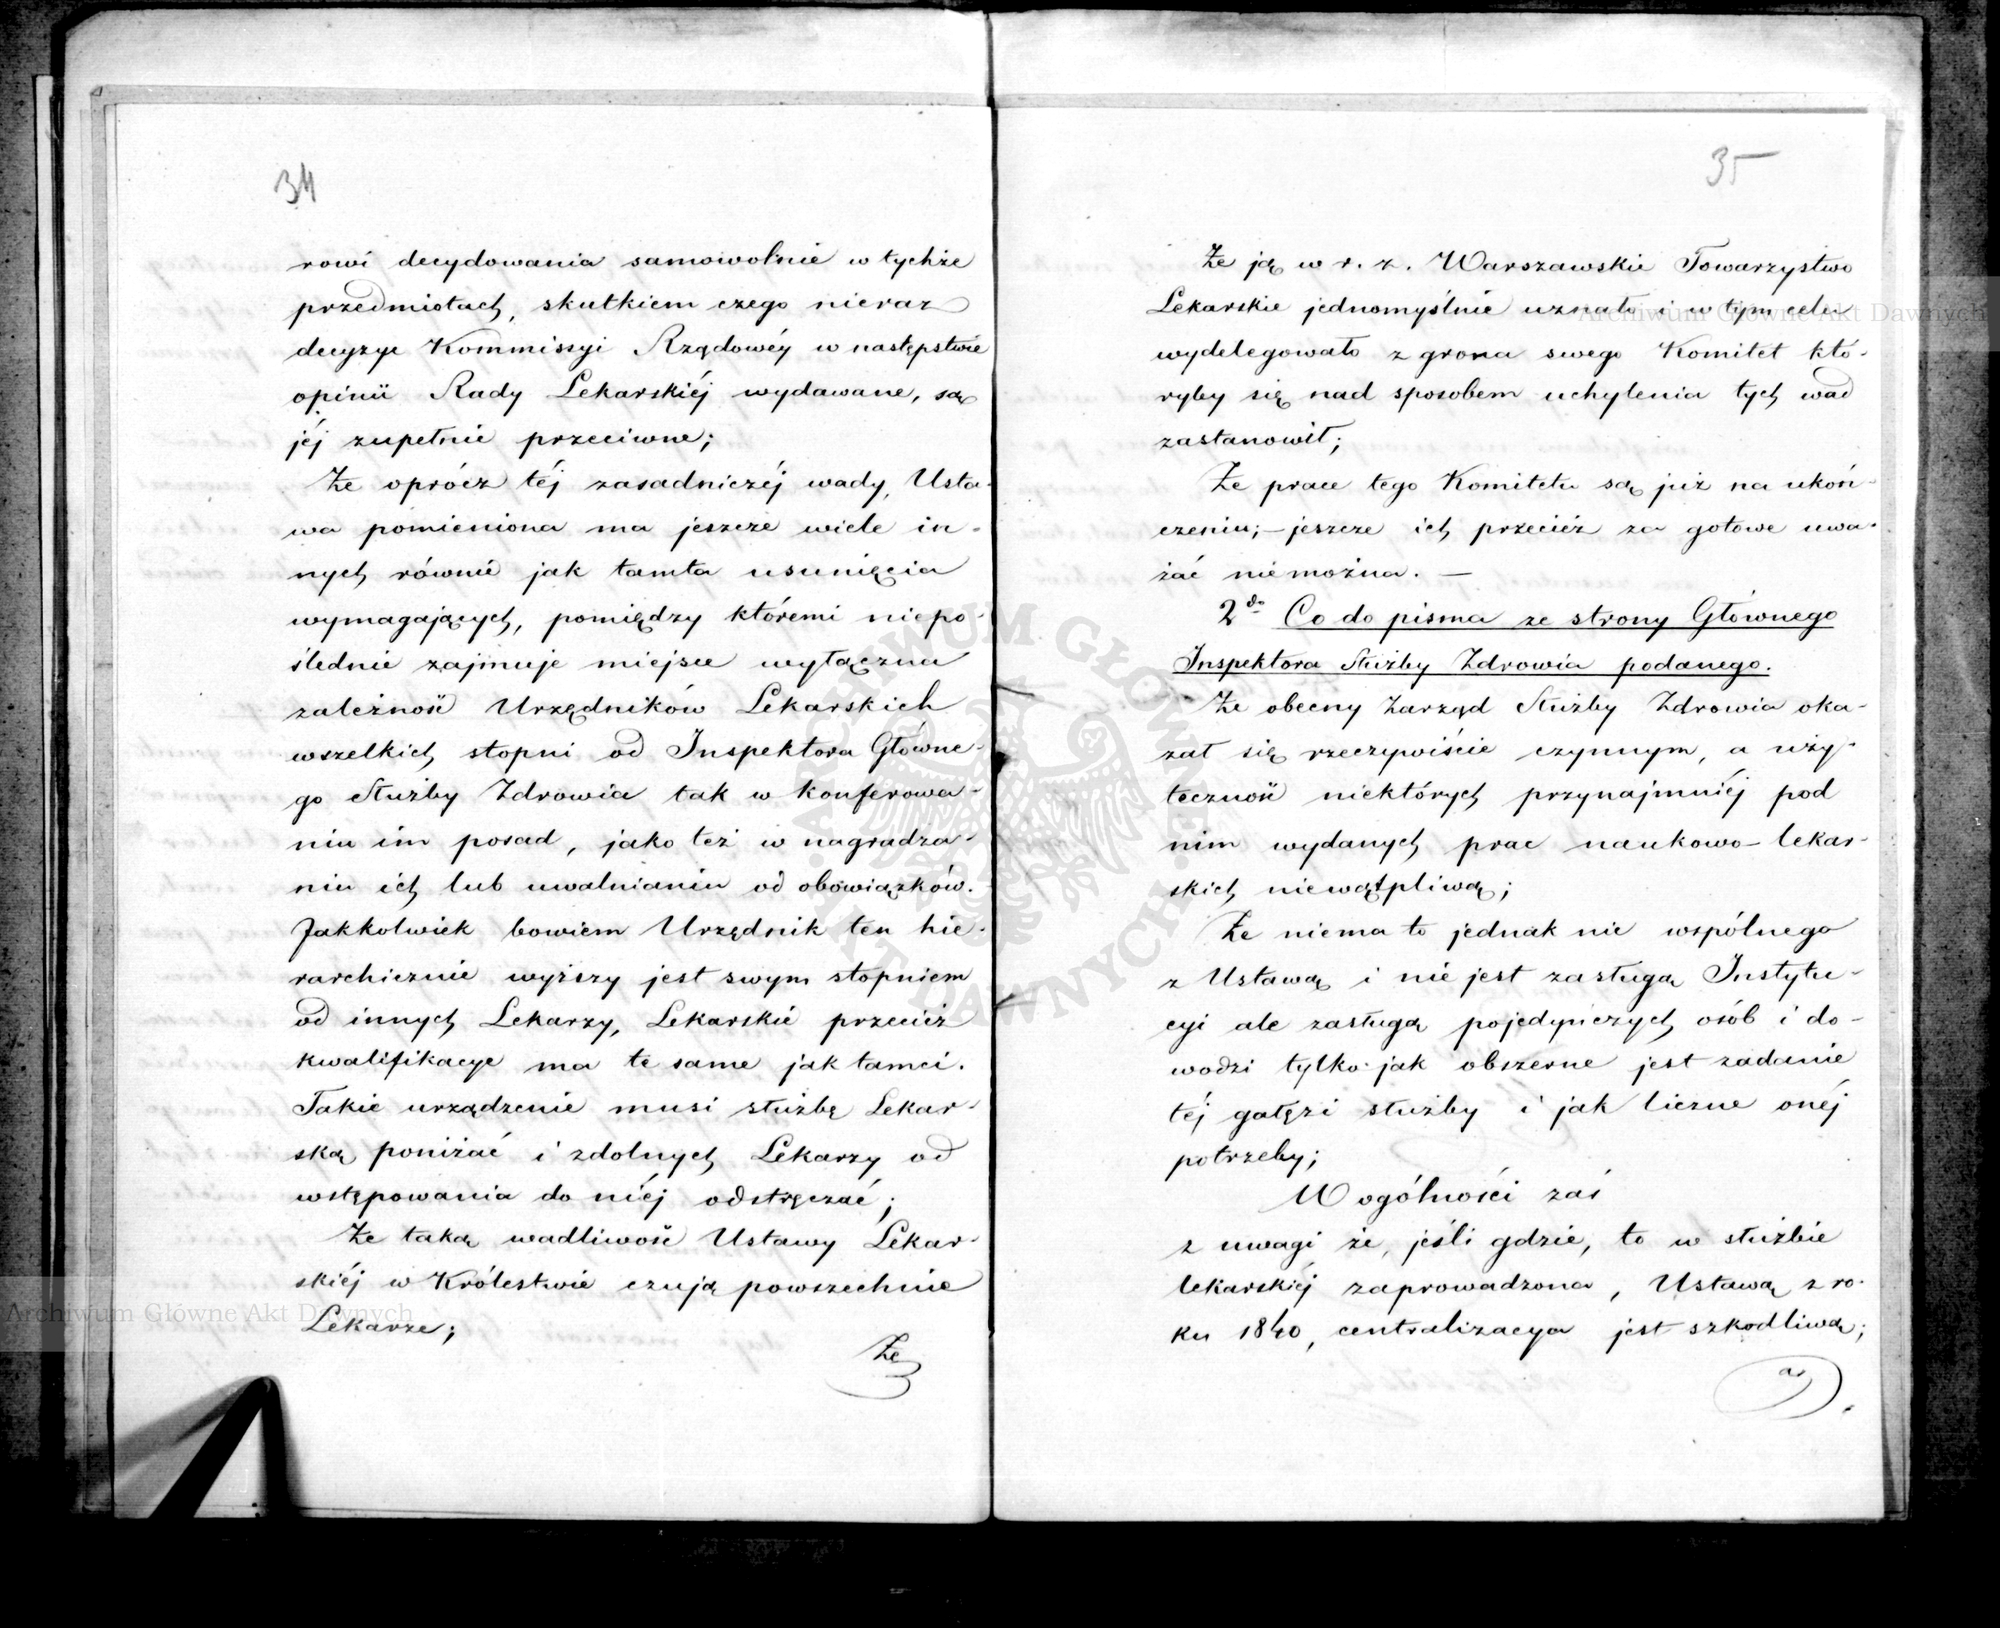 34
rowi decydowania samowolnie w tychże
przedmiotach, skutkiem czego nieraz
decyzye Kommissyi Rządowéy w następstwie
opinii Rady Lekarskiéj wydawane, są
jéj zupełnie przeciwne;
Że oprócz téj zasadniczéj wady, Usta-
wa pomieniona ma jeszcze wiele in-
nych równie jak tamta usunięcia
wymagających, pomiędzy któremi niepo-
ślednie zajmuje miejsce wyłączna
zależność Urzędników Lekarskich
wszelkich stopni od Inspektora Główne-
go Służby Zdrowia tak w konferowa-
niu im posad, jako też w nagradza-
niu ich lub uwalnianiu od obowiązków.
Jakkolwiek bowiem Urzędnik ten hie-
rarchicznie wyższy jest swym stopniem
od innych Lekarzy, Lekarskie przecież
kwalifikacye ma te same jak tamci.
Takie urządzenie musi służbę Lekar-
ską poniżać i zdolnych Lekarzy od
wstępowania do niéj odstręczać;
Że taką wadliwość Ustawy Lekar-
skiéj w Królestwie czują powszechnie
Lekarze;
Że
35
Że ją w r. z. Warszawskie Towarzystwo
Lekarskie jednomyślnie uznało i w tym celu
wydelegowało z grona swego Komitet któ-
ryby się nad sposobem uchylenia tych wad
zastanowił;
Że prace tego Komitetu są już na ukoń-
czeniu;– jeszcze ich przecież za gotowe uwa-
żać niemożna. —
2do Co do pisma ze strony Głównego
Inspektora Służby Zdrowia podanego.
Że obecny Zarząd Służby Zdrowia oka-
zał się rzeczywiście czynnym, a uży-
teczność niektórych przynajmniéj pod
nim wydanych prac naukowo-lekar-
skich niewątpliwą;
Że niema to jednak nic wspólnego
z Ustawą i nie jest zasługą Instytu-
cyi ale zasługą pojedyńczych osób i do-
wodzi tylko jak obszerne jest zadanie
téj gałęzi służby i jak liczne onéj
potrzeby;
W ogólności zaś
z uwagi że, jeśli gdzie, to w służbie
lekarskiéj zaprowadzona, Ustawą z ro-
ku 1840, centralizacya jest szkodliwą;
a
Archiwum Główne Akt Dawnych
Archiwum Główne Akt Dawnych
ARCHIWUM GŁÓWNE AKT DAWNYCH